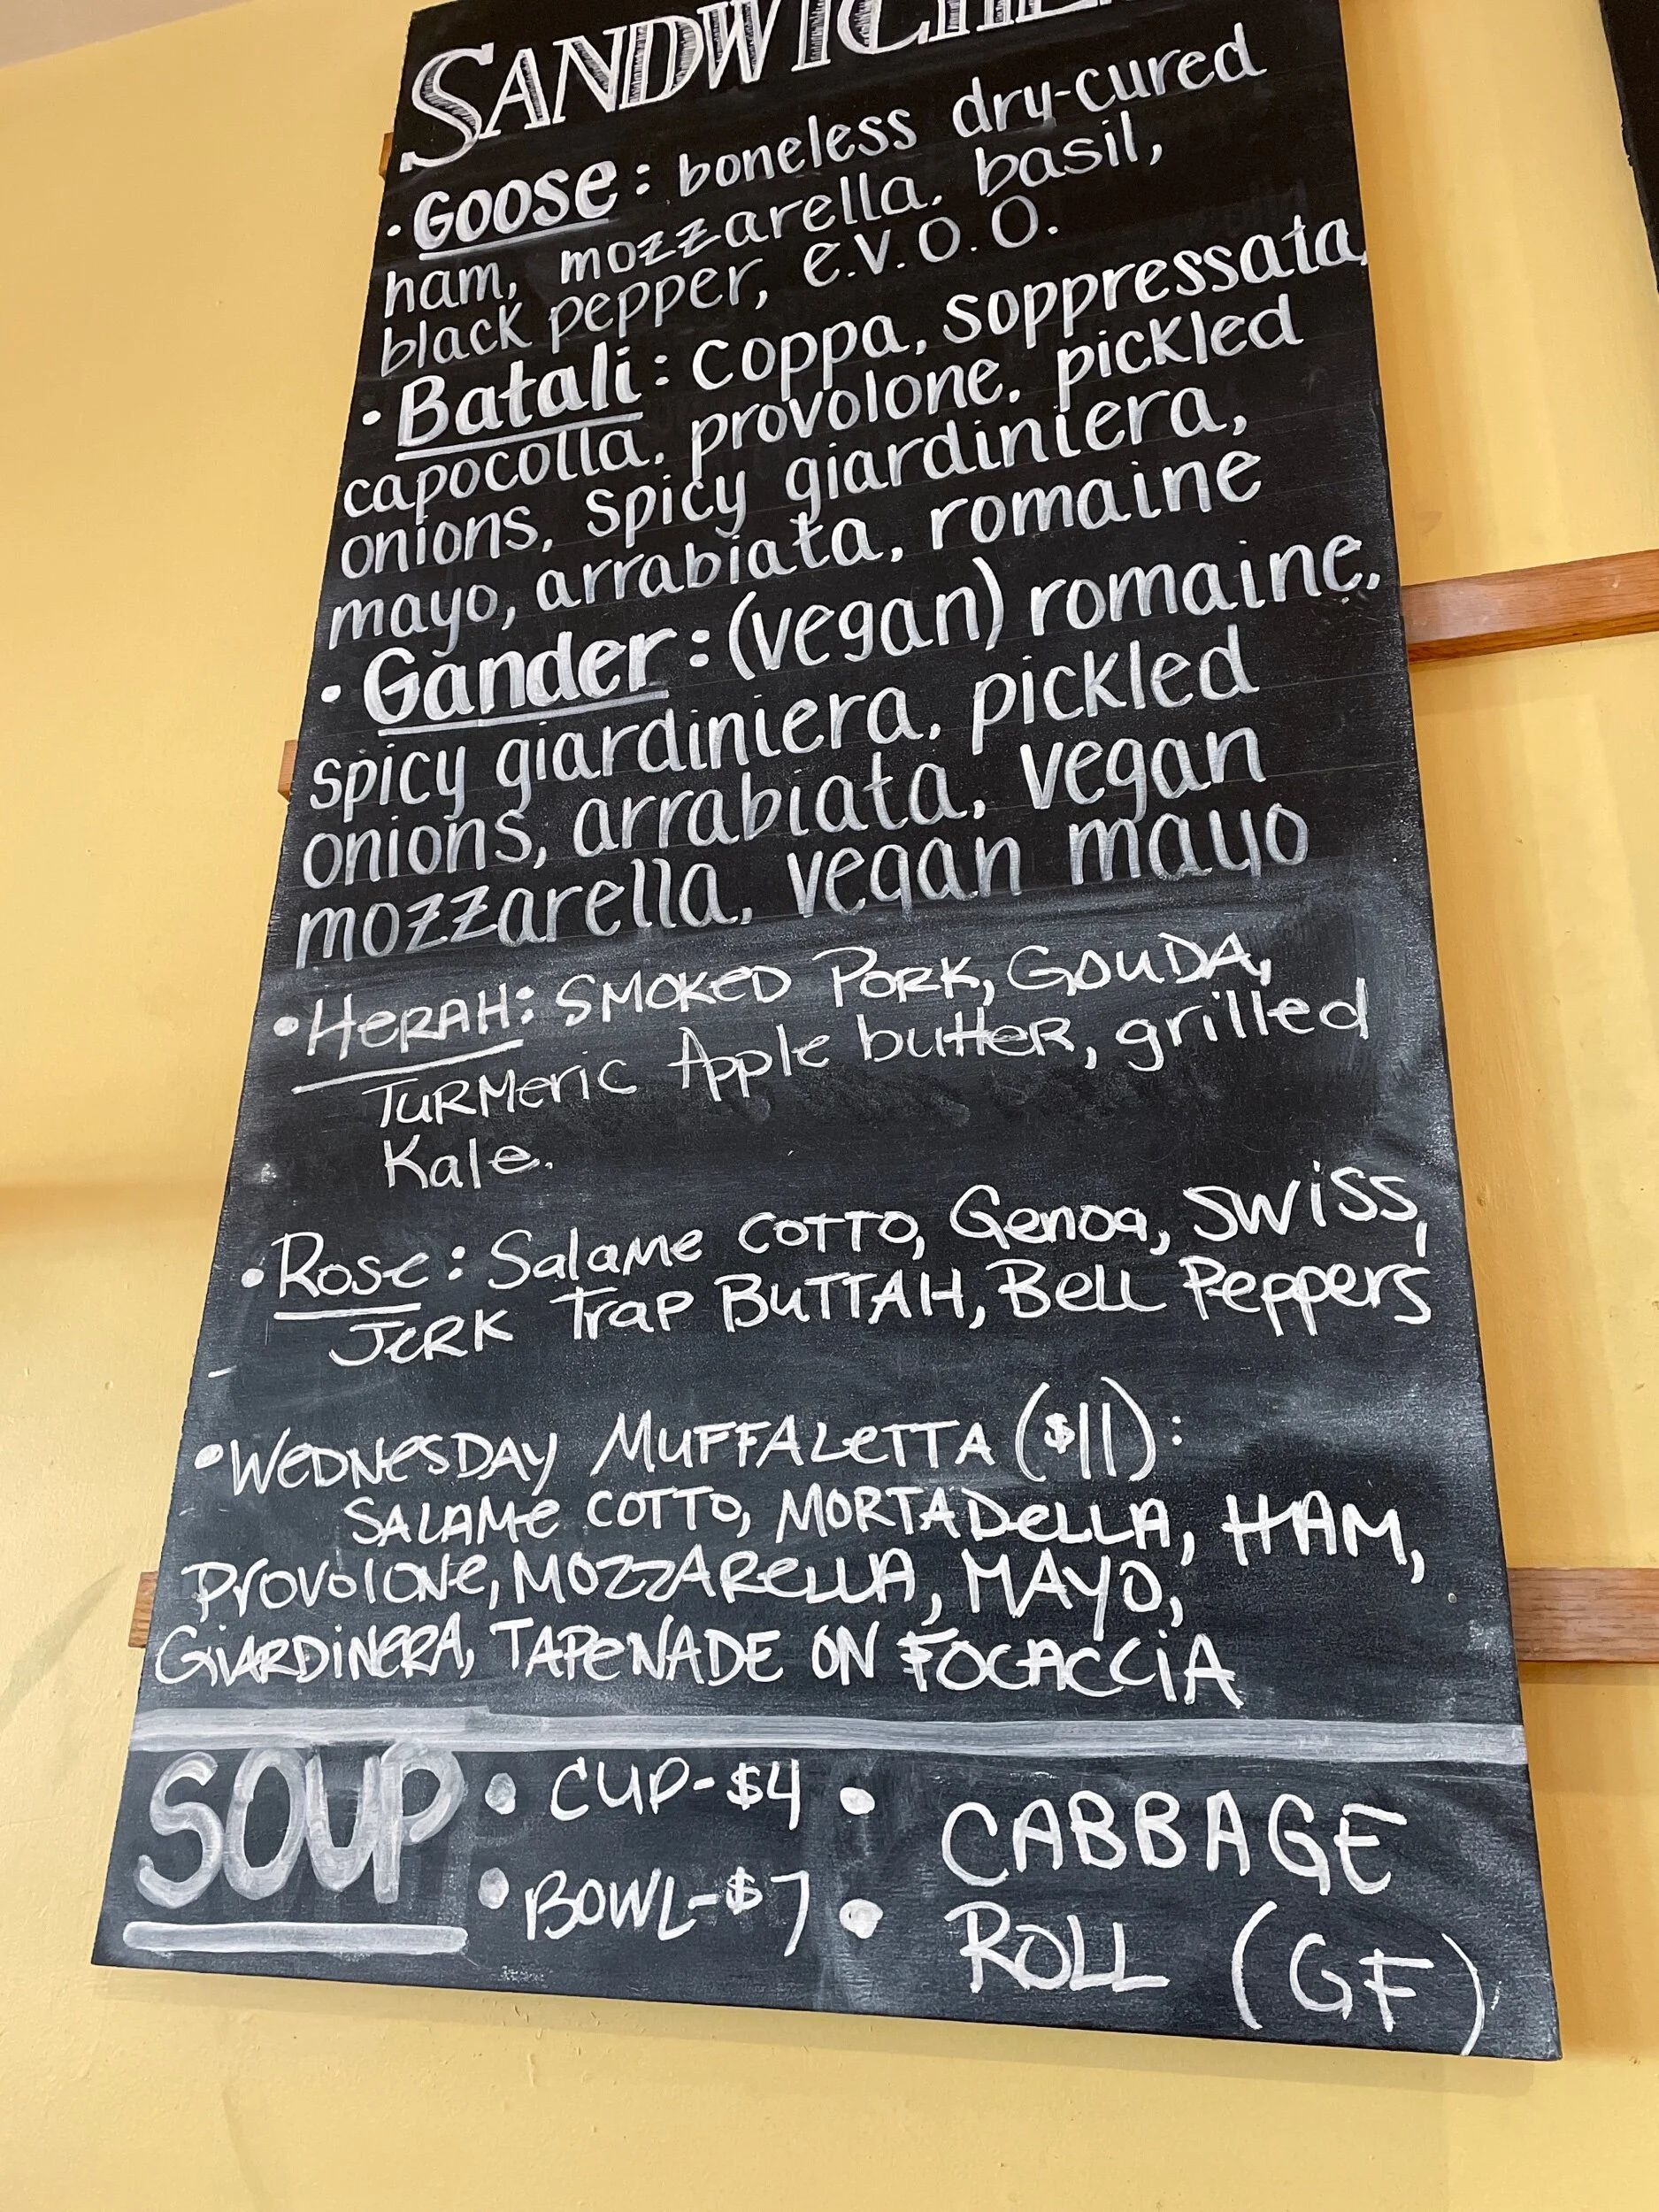 SANDWICHE
• Goose: boneless dry-cured
ham, mozzarella, basil,
black pepper, e.v.o.o.
• Batali: coppa, soppressata,
capocolla, provolone, pickled
onions, spicy giardiniera,
mayo, arrabiata, romaine
• Gander: (vegan) romaine,
spicy giardiniera, pickled
onions, arrabiata, vegan
mozzarella, vegan mayo
• HERAH: SMOKED PORK, GOUDA,
TURMERIC Apple butter, grilled
Kale.
• Rose: Salame COTTO, Genoa, SWISS,
JERK Trap BUTTAH, BELL Peppers
• WEDNESDAY MUFFALETTA ($11):
SALAME COTTO, MORTADELLA, HAM,
PROVOLONE, MOZZARELLA, MAYO,
GIARDINERA, TAPENADE ON FOCACCIA
SOUP • CUP-$4 • CABBAGE
• BOWL-$7 • ROLL (GF)